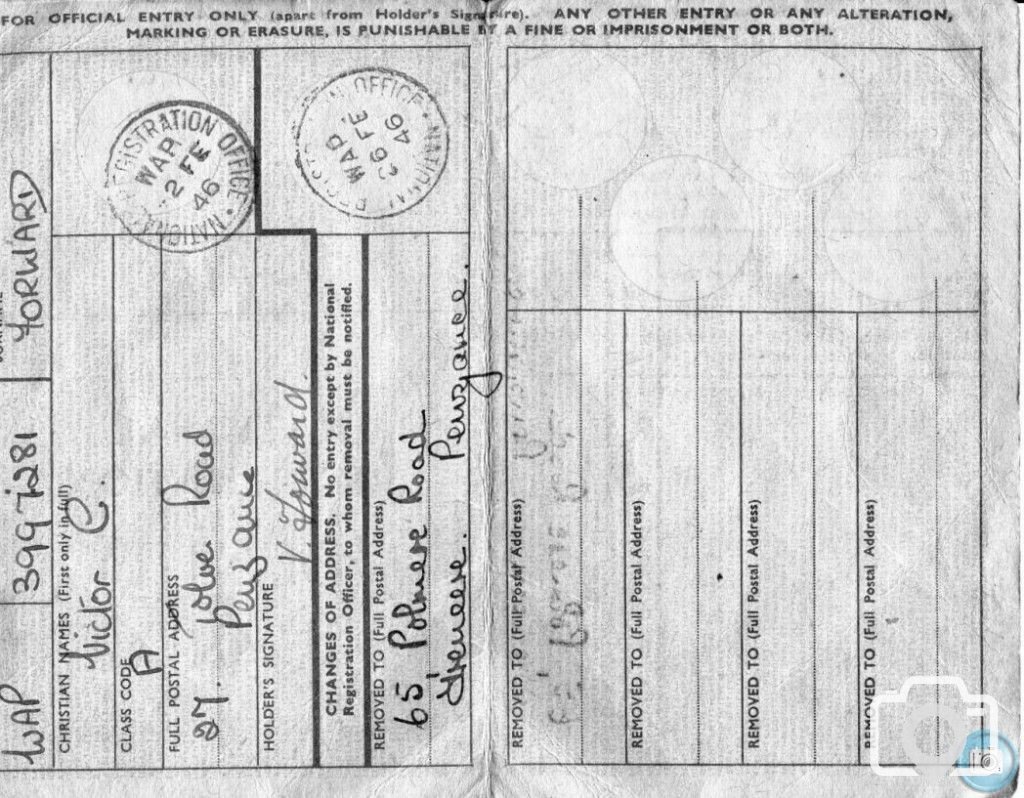 FOR OFFICIAL ENTRY ONLY (apart from Holder's Signature). ANY OTHER ENTRY OR ANY ALTERATION,
MARKING OR ERASURE, IS PUNISHABLE BY A FINE OR IMPRISONMENT OR BOTH.
WAP 399 7281 YORWARD
CHRISTIAN NAMES (First only in full)
Victor C.
CLASS CODE
A
FULL POSTAL ADDRESS
27. Road
Penzance
HOLDER'S SIGNATURE
NATIONAL REGISTRATION OFFICE
WAP
2 FE
46
CHANGES OF ADDRESS. No entry except by National
Registration Officer, to whom removal must be notified.
REMOVED TO (Full Postal Address)
65 Polmere Road
Treneere. Penzance.
NATIONAL OFFICE
WAP
26 FE
46
REMOVED TO (Full Postal Address)
REMOVED TO (Full Postal Address)
REMOVED TO (Full Postal Address)
REMOVED TO (Full Postal Address)